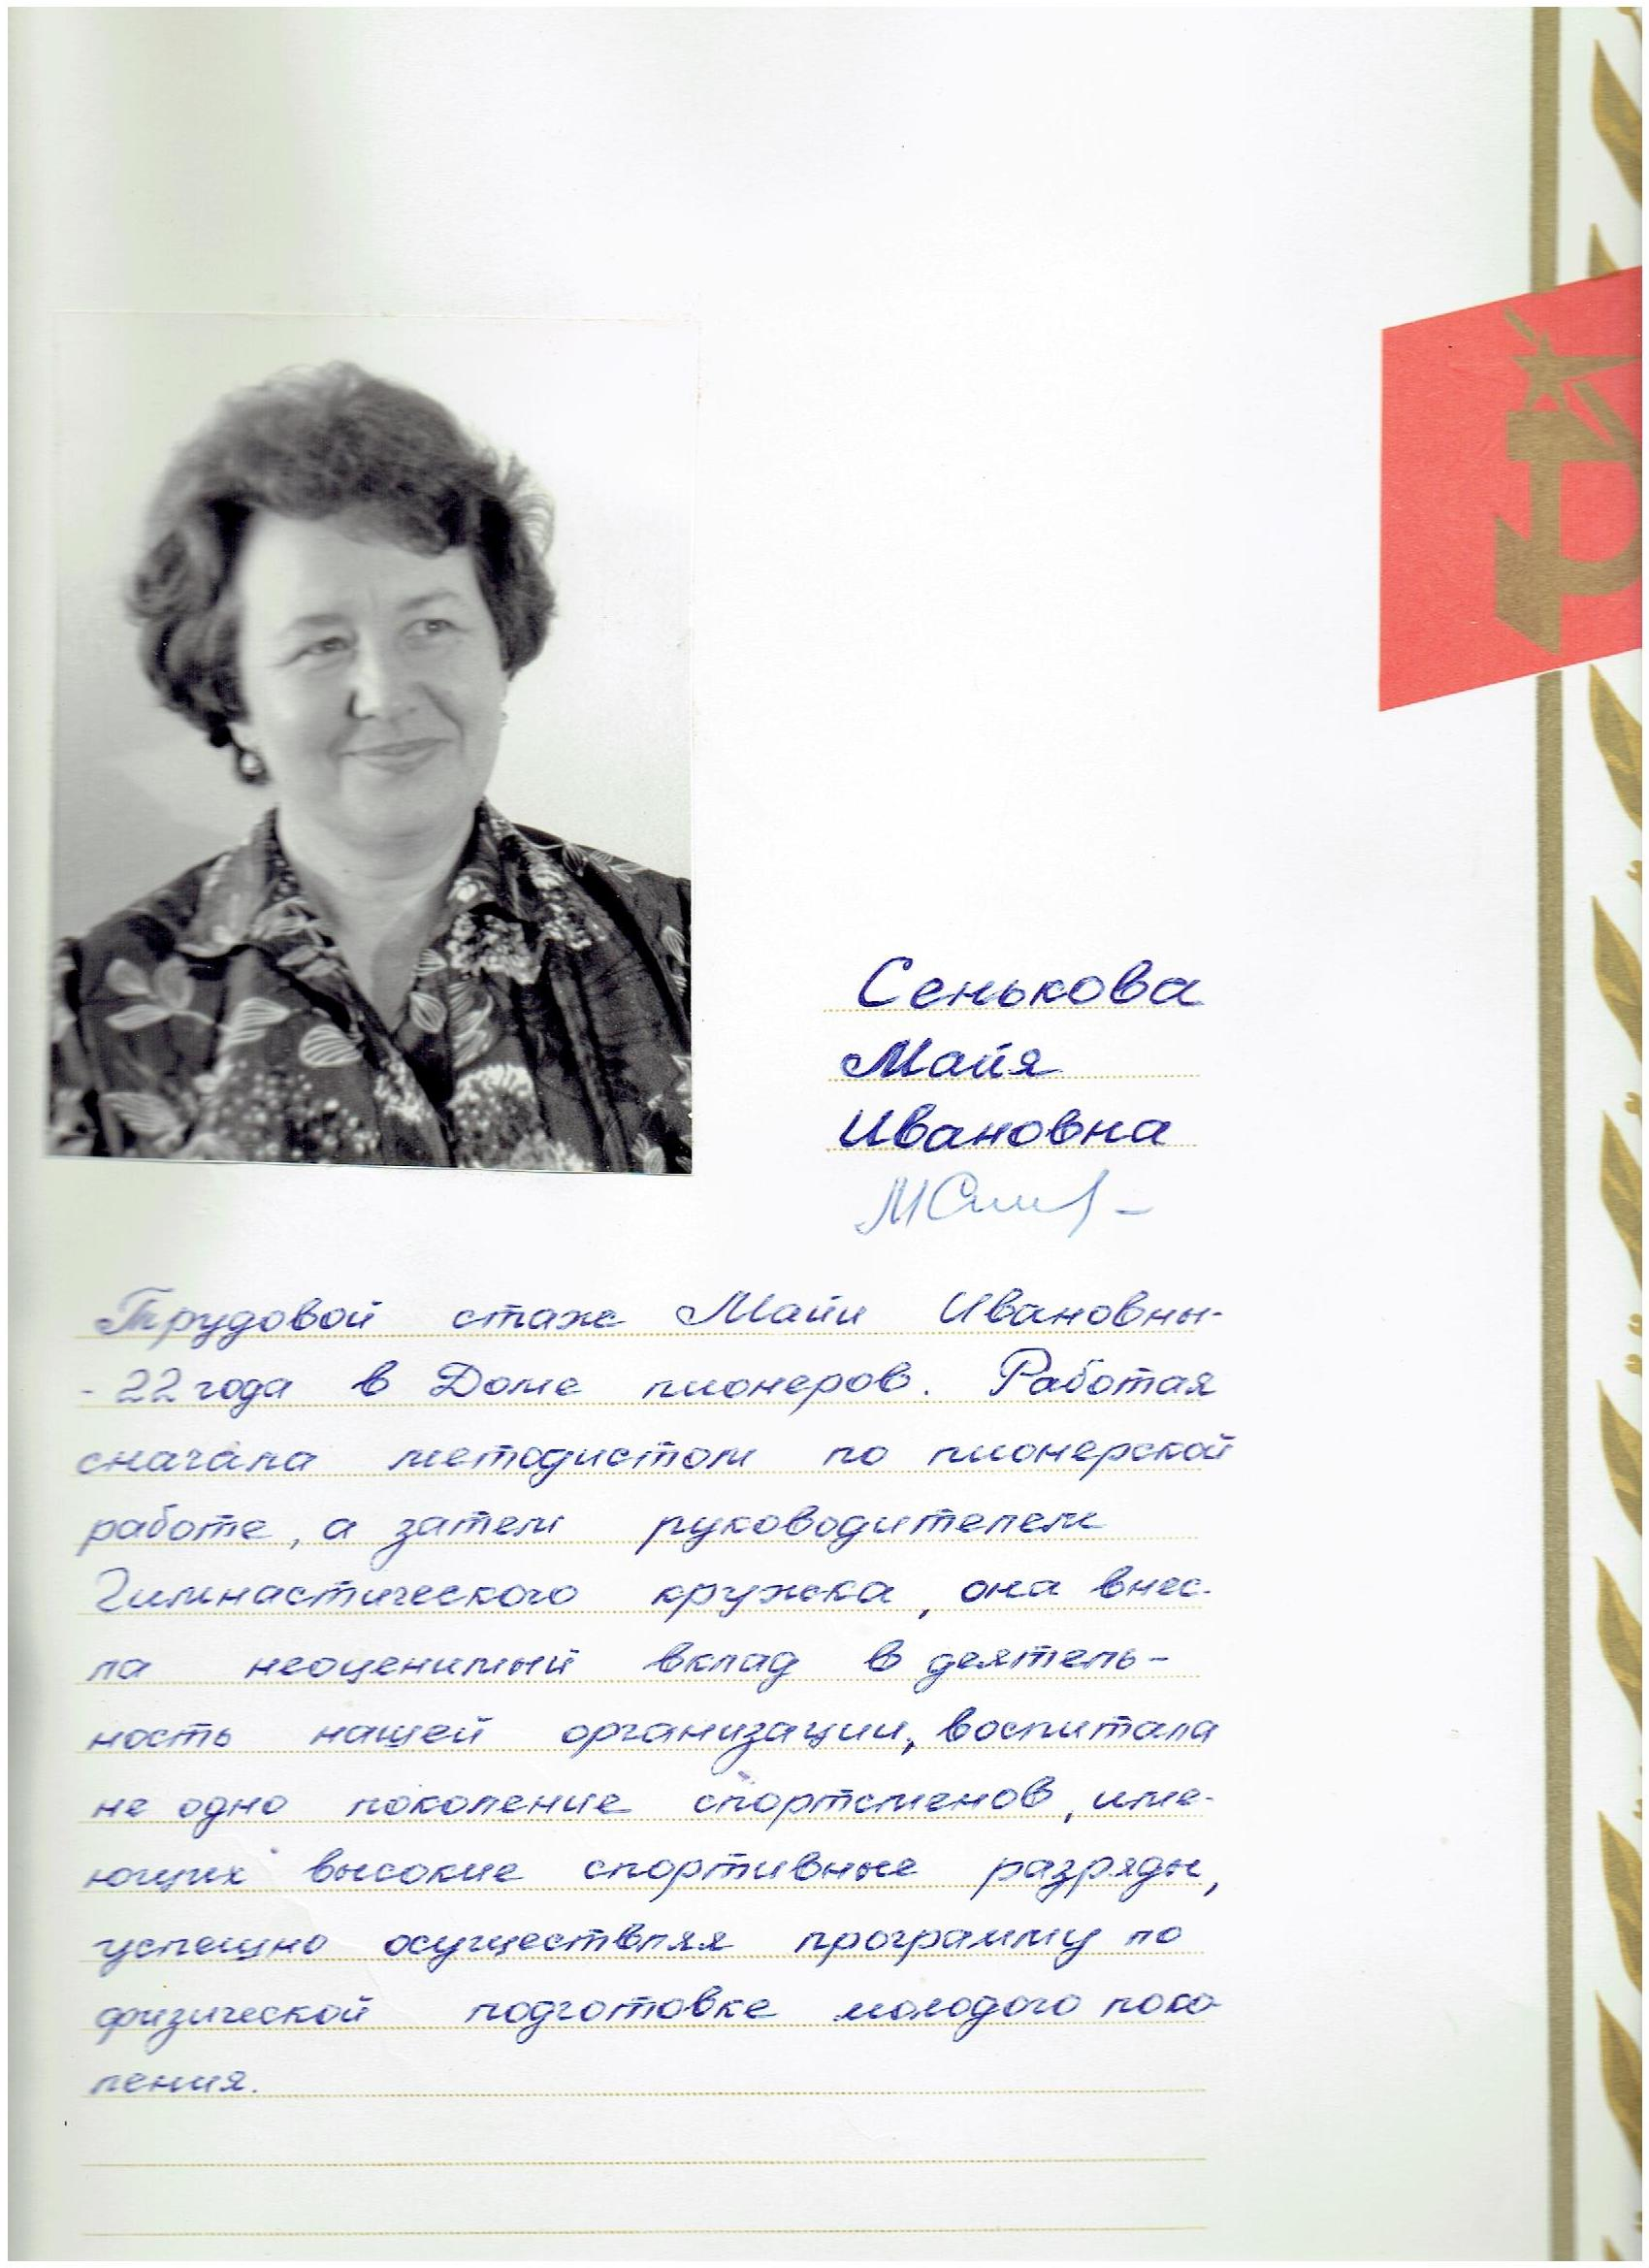 Сенькова
Майя
Ивановна
Трудовой стаж Майи Ивановны-
- 22 года в Доме пионеров. Работая
сначала методистом по пионерской
работе, а затем руководителем
Гимнастического кружка, она внес-
ла неоценимый вклад в деятель-
ность нашей организации, воспитала
не одно поколение спортсменов, име-
ющих высокие спортивные разряды,
успешно осуществляя программу по
физической подготовке молодого поко-
ления.